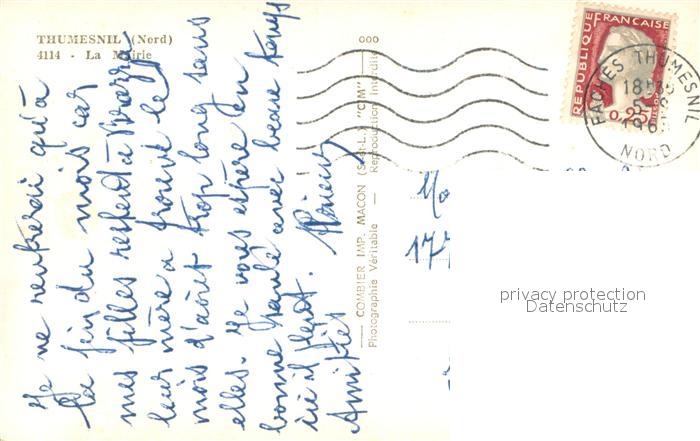 THUMESNIL (Nord)
4114 - La Mairie
Je ne rentrerai qu'à
la fin du mois car
mes filles restent à
leur mère a trouvé le
mois d'août trop long sans
elles. Je vous espère en
bonne santé avec beau temps
ici il pleut.
Amitiés
COMBIER IMP. MACON (S.-R.-L.) "CIM"
Photographie Véritable - Reproduction Interdite
REPUBLIQUE FRANÇAISE
0,25
FACHES THUMESNIL
18H
NORD
privacy protection
Datenschutz